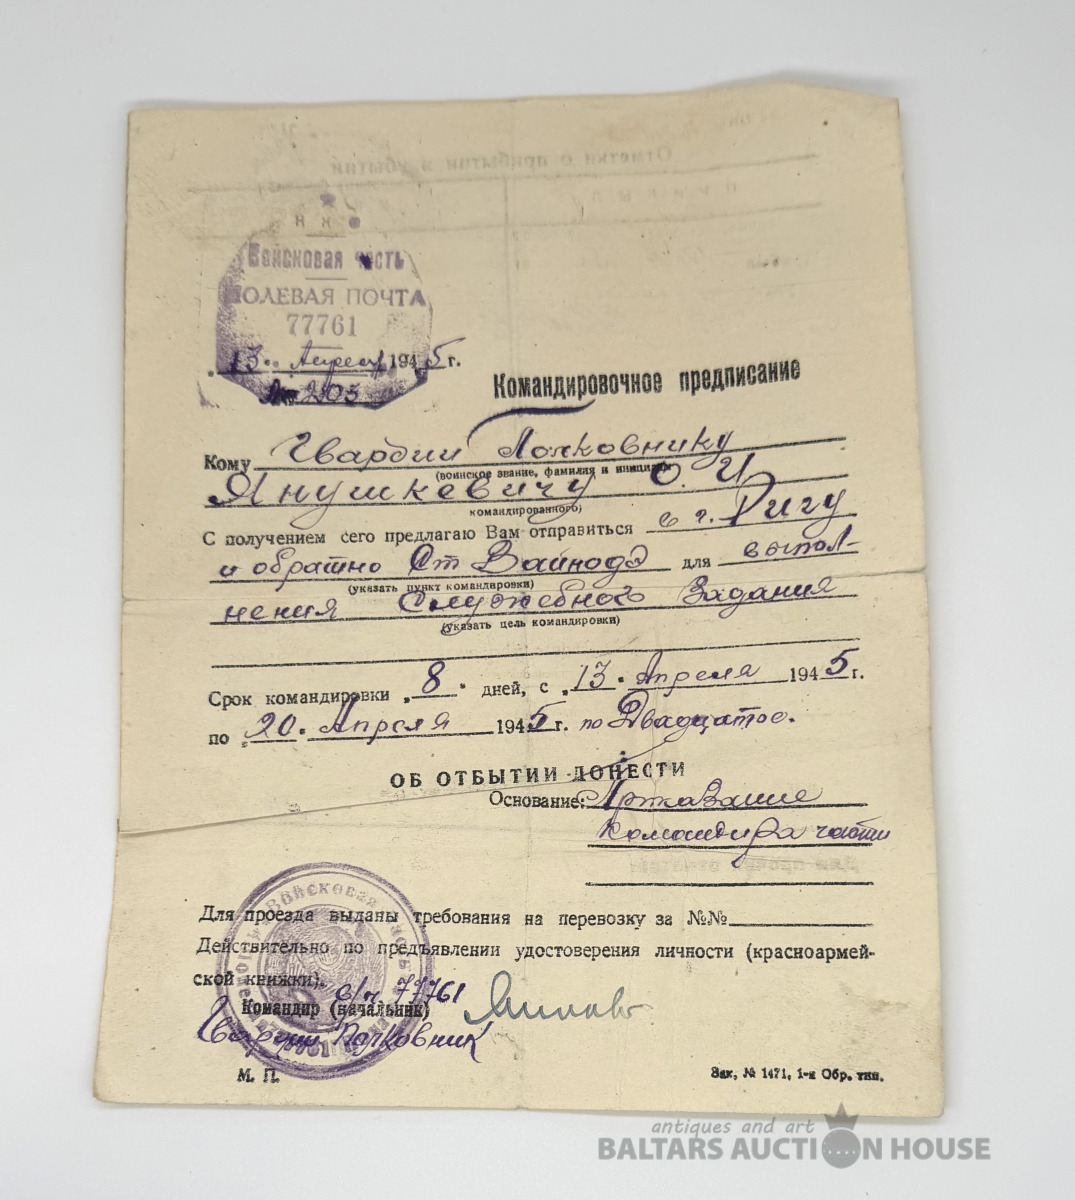 Отметки о прибытии и убытии
Н К О
Войсковая часть
ПОЛЕВАЯ ПОЧТА
77761
„13" Апреля 1945 г.
№ 203
Командировочное предписание
Кому Гвардии Полковнику
(воинское звание, фамилия и инициалы
Янушкевичу О. И.
командированного)
С получением сего предлагаю Вам отправиться в г. Ригу
и обратно Ст Вайнодэ для выпол-
(указать пункт командировки)
нения Служебного Задания
(указать цель командировки)
Срок командировки „8" дней, с „13" Апреля 1945 г.
по „20" Апреля 1945 г. по Двадцатое.
ОБ ОТБЫТИИ ДОНЕСТИ
Основание:
командира части
Для проезда выданы требования на перевозку за №№
Действительно по предъявлении удостоверения личности (красноармей-
ской книжки).
в/ч 77761
Командир (начальник)
Гвардии Полковник
М. П.
Зак. № 1471, 1-я Обр. тип.
antiques and art
BALTARS AUCTION HOUSE